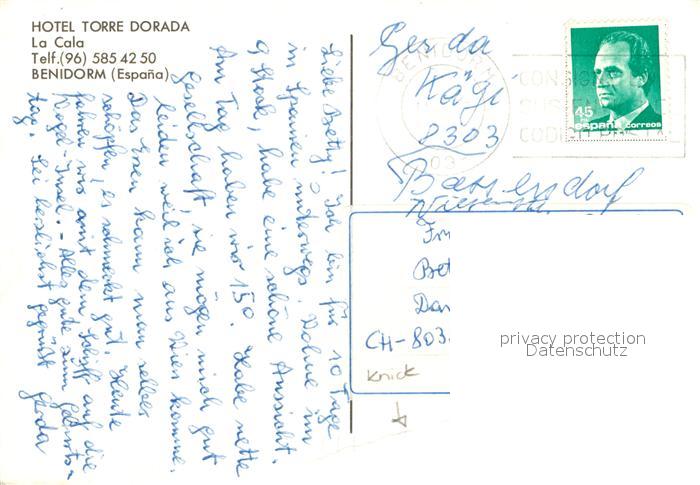 HOTEL TORRE DORADA
La Cala
Telf.(96) 585 42 50
BENIDORM (España)
Liebe Betty! Ich bin für 10 Tage
in Spanien unterwegs. Wohne im
9 Stock, habe eine schöne Aussicht.
Am Tag haben wir 15°. Habe nette
Gesellschaft sie mögen mich gut
leiden weil ich aus Wien komme.
Das Essen kann man selber
schöpfen, es schmeckt gut. Heute
fahren wir mit dem Schiff auf die
Vogel-Insel. - Alles gute zum Geburts-
tag. Sei herzlichst gegrüßt Gerda
Gerda
Kägi
8303
Bassersdorf
BENIDORM
CONSIGNE
CODIGO POSTAL
45
españa correos
Fr
Bet
Dan
CH-803
Knick
privacy protection
Datenschutz